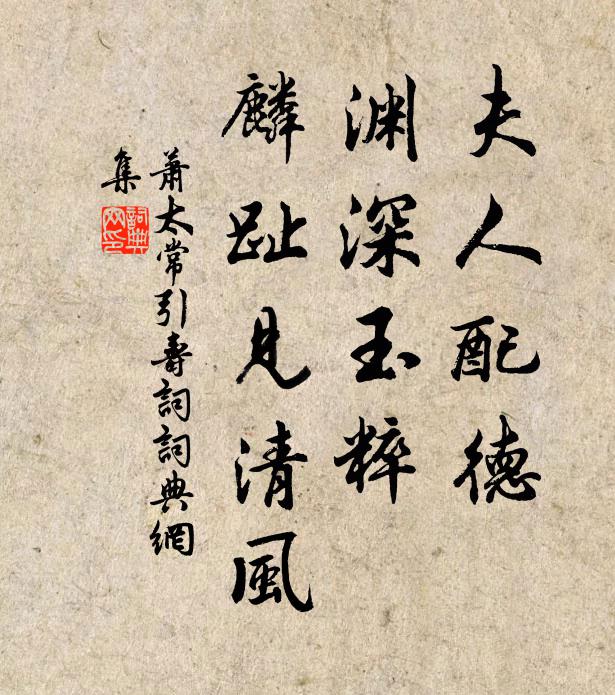 夫人配德
渊深玉粹
麟趾見清風
蕭太常引壽詞詞典網
集
詞典
网印